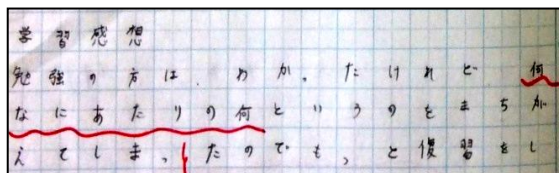 学習感想
勉強の方は、わかったけれど 何
なにあたりの何というのをまちが
えてしまったのでもっと復習をし